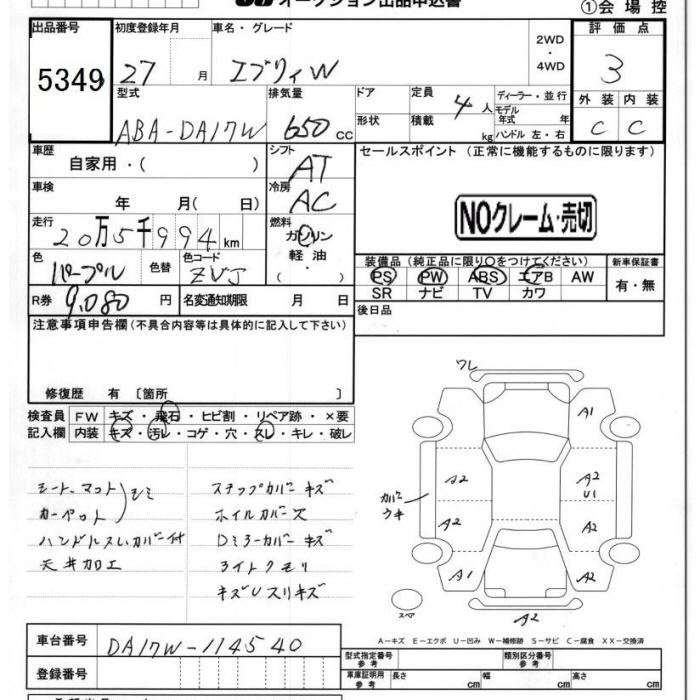 オークション出品申込書
①会場控
出品番号 5349
初度登録年月 27 月
車名・グレード エブリィW
2WD・4WD
評価点 3
外装 C 内装 C
型式 ABA-DA17W
排気量 650 cc
ドア形状
定員 4 人
積載 kg
ディーラー・並行
モデル年式 年
ハンドル 左・右
車歴 自家用・( )
シフト AT
セールスポイント (正常に機能するものに限ります)
車検 年 月( 日)
冷房 AC
NOクレーム・売切
走行 20万5千994km
燃料 ガソリン 軽油・( )
色 パープル 色替 色コード ZVJ
装備品(純正品に限り○をつけてください)
新車保証書
PS PW ABS エアB AW
SR ナビ TV カワ
有・無
R券 9,080 円 名変通知期限 月 日
後日品
注意事項申告欄(不具合内容等は具体的に記入して下さい)
修復歴 有 〔箇所 〕
検査員 FW キズ・飛石・ヒビ割・リペア跡・×要
記入欄 内装 キズ・汚レ・コゲ・穴・スレ・キレ・破レ
シート、マット シミ
カーペット
ハンドルスレカバー付
天井加工
ステップカバー キズ
ホイルカバーズ
Dミラーカバー キズ
ライトクモリ
キズUスリキズ
ワレ
A1
A2
A2
U1
カバーウキ
A2
A2
A1
A2
スペア
A2
A-キズ E-エクボ U-凹み W-補修跡 S-サビ C-腐食 XX-交換済
車台番号 DA17W-114540
登録番号
型式指定番号 参考
類別区分番号 参考
車庫証明用 参考 長さ cm 幅 cm 高さ cm